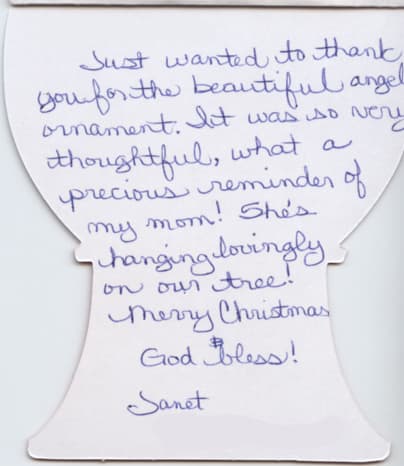 Just wanted to thank
you for the beautiful angel
ornament. It was so very
thoughtful, what a
precious reminder of
my mom! She's
hanging lovingly
on our tree!
Merry Christmas
God bless!
Janet